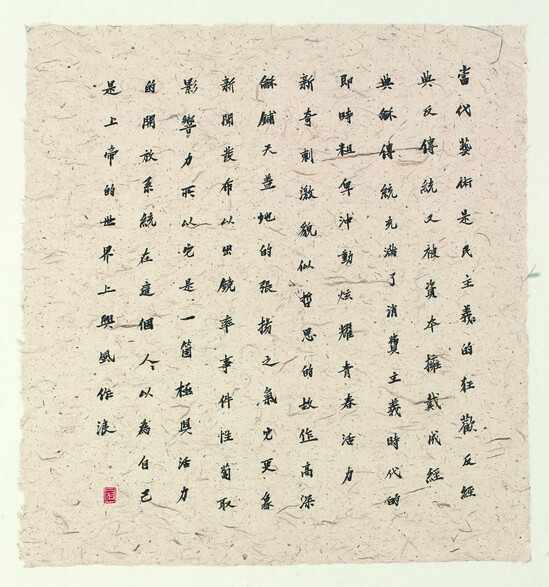 當代藝術是民主義的狂歡反經
典反傳統又被資本擁戴成經
典穌傳統充滿了消費主義時代的
即時粗卑沖動炫耀青春活力
新奇刺激貌似哲思的故作高深
穌鋪天蓋地的張揚之氣它更象
新聞發布以出鏡率事件性取
影響力所以它是一箇極具活力
的開放系統在這個人々以為自己
是上帝的世界上興風作浪